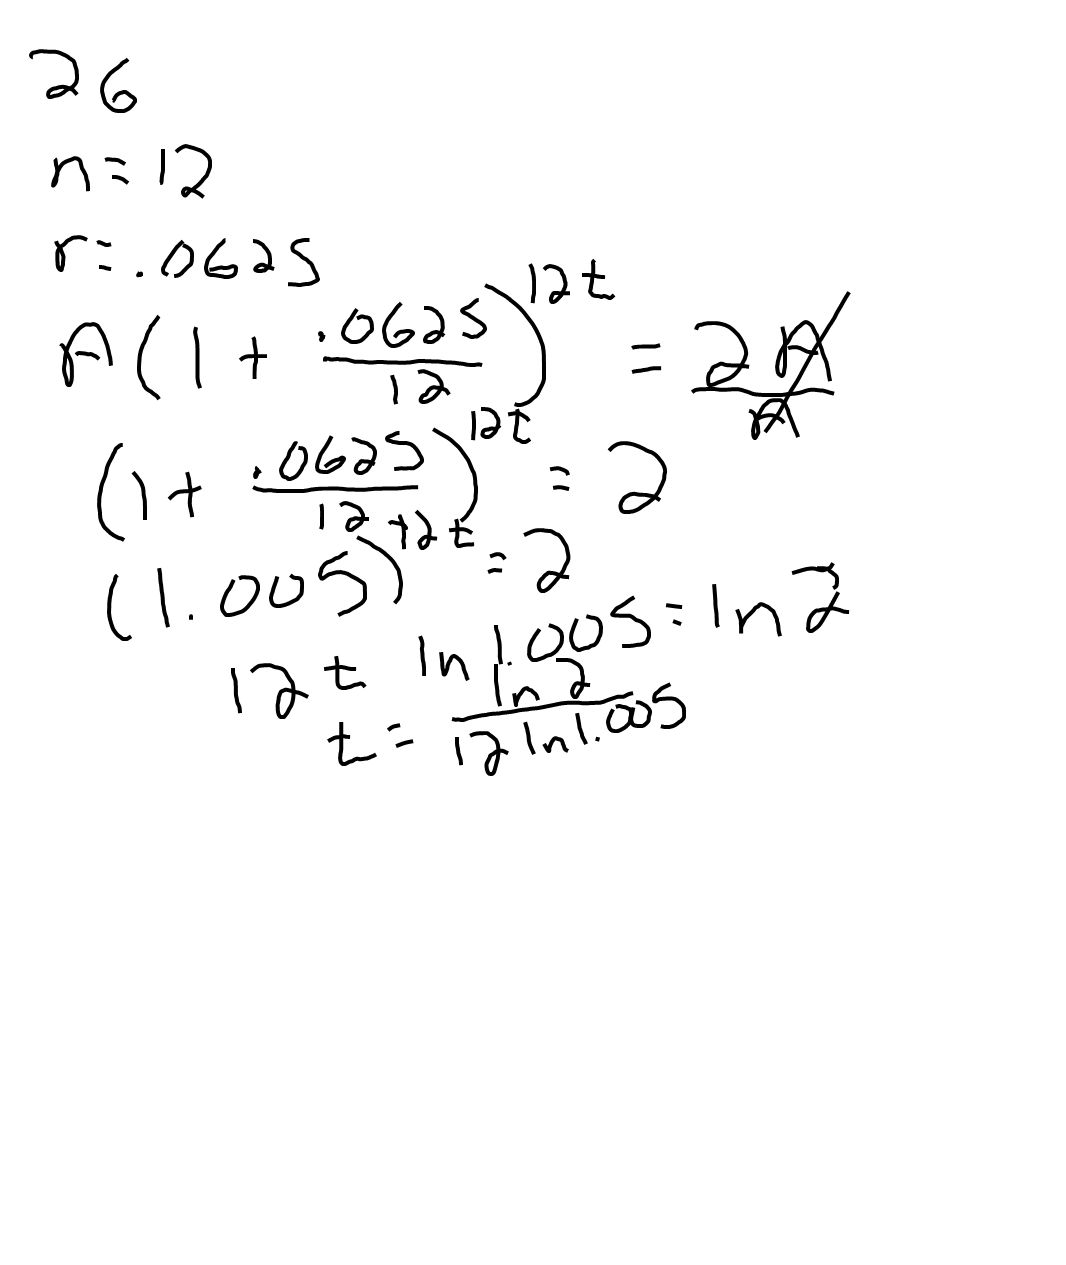 26
n = 12
r = .0625
A(1 + .0625/12)^12t = 2A/A
(1 + .0625/12)^12t = 2
(1.005)^12t = 2
12t ln 1.005 = ln 2
t = ln 2/12 ln 1.005